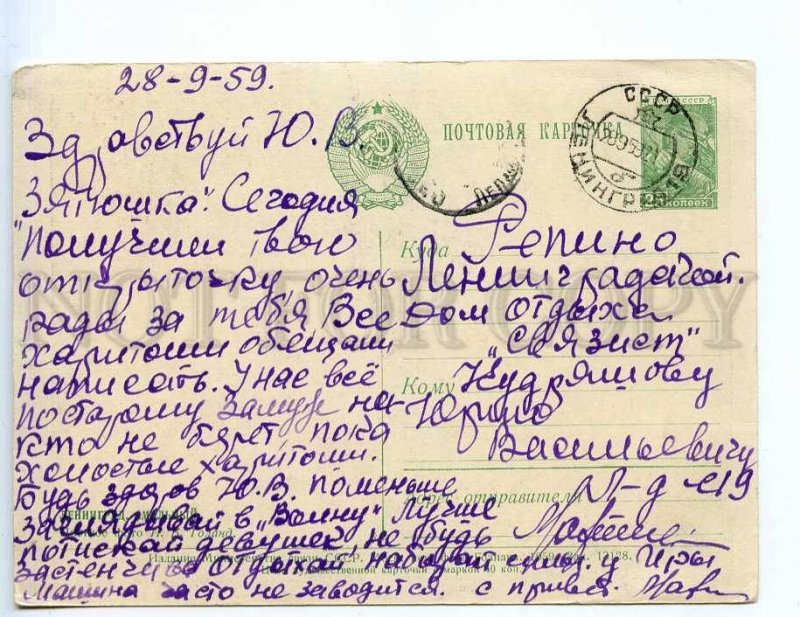 28-9-59.
Здравствуй Ю. В.
Зятюшка! Сегодня
получили твою
открыточку очень
рады за тебя Все
харитоши обещали
написать. У нас всё
по старому замуж ни-
кто не берет, пока
холостые харитоши.
Будь здоров Ю.В. поменьше
заглядывай в „Волну" лучше
поискай девушек, не будь
застенчив отдыхай, набирай силы. у Иры
Машина часто не заводится. с привет.
ПОЧТОВАЯ КАРТОЧКА
СССР
ЛЕНИНГРАД
КОПЕЕК
Куда
Репино
Ленинградской.
Дом отдыха
„Связист"
Кому
Кудряшову
Юрию
Васильевичу
Адрес отправителя
Л-д
NOT FOR COPY